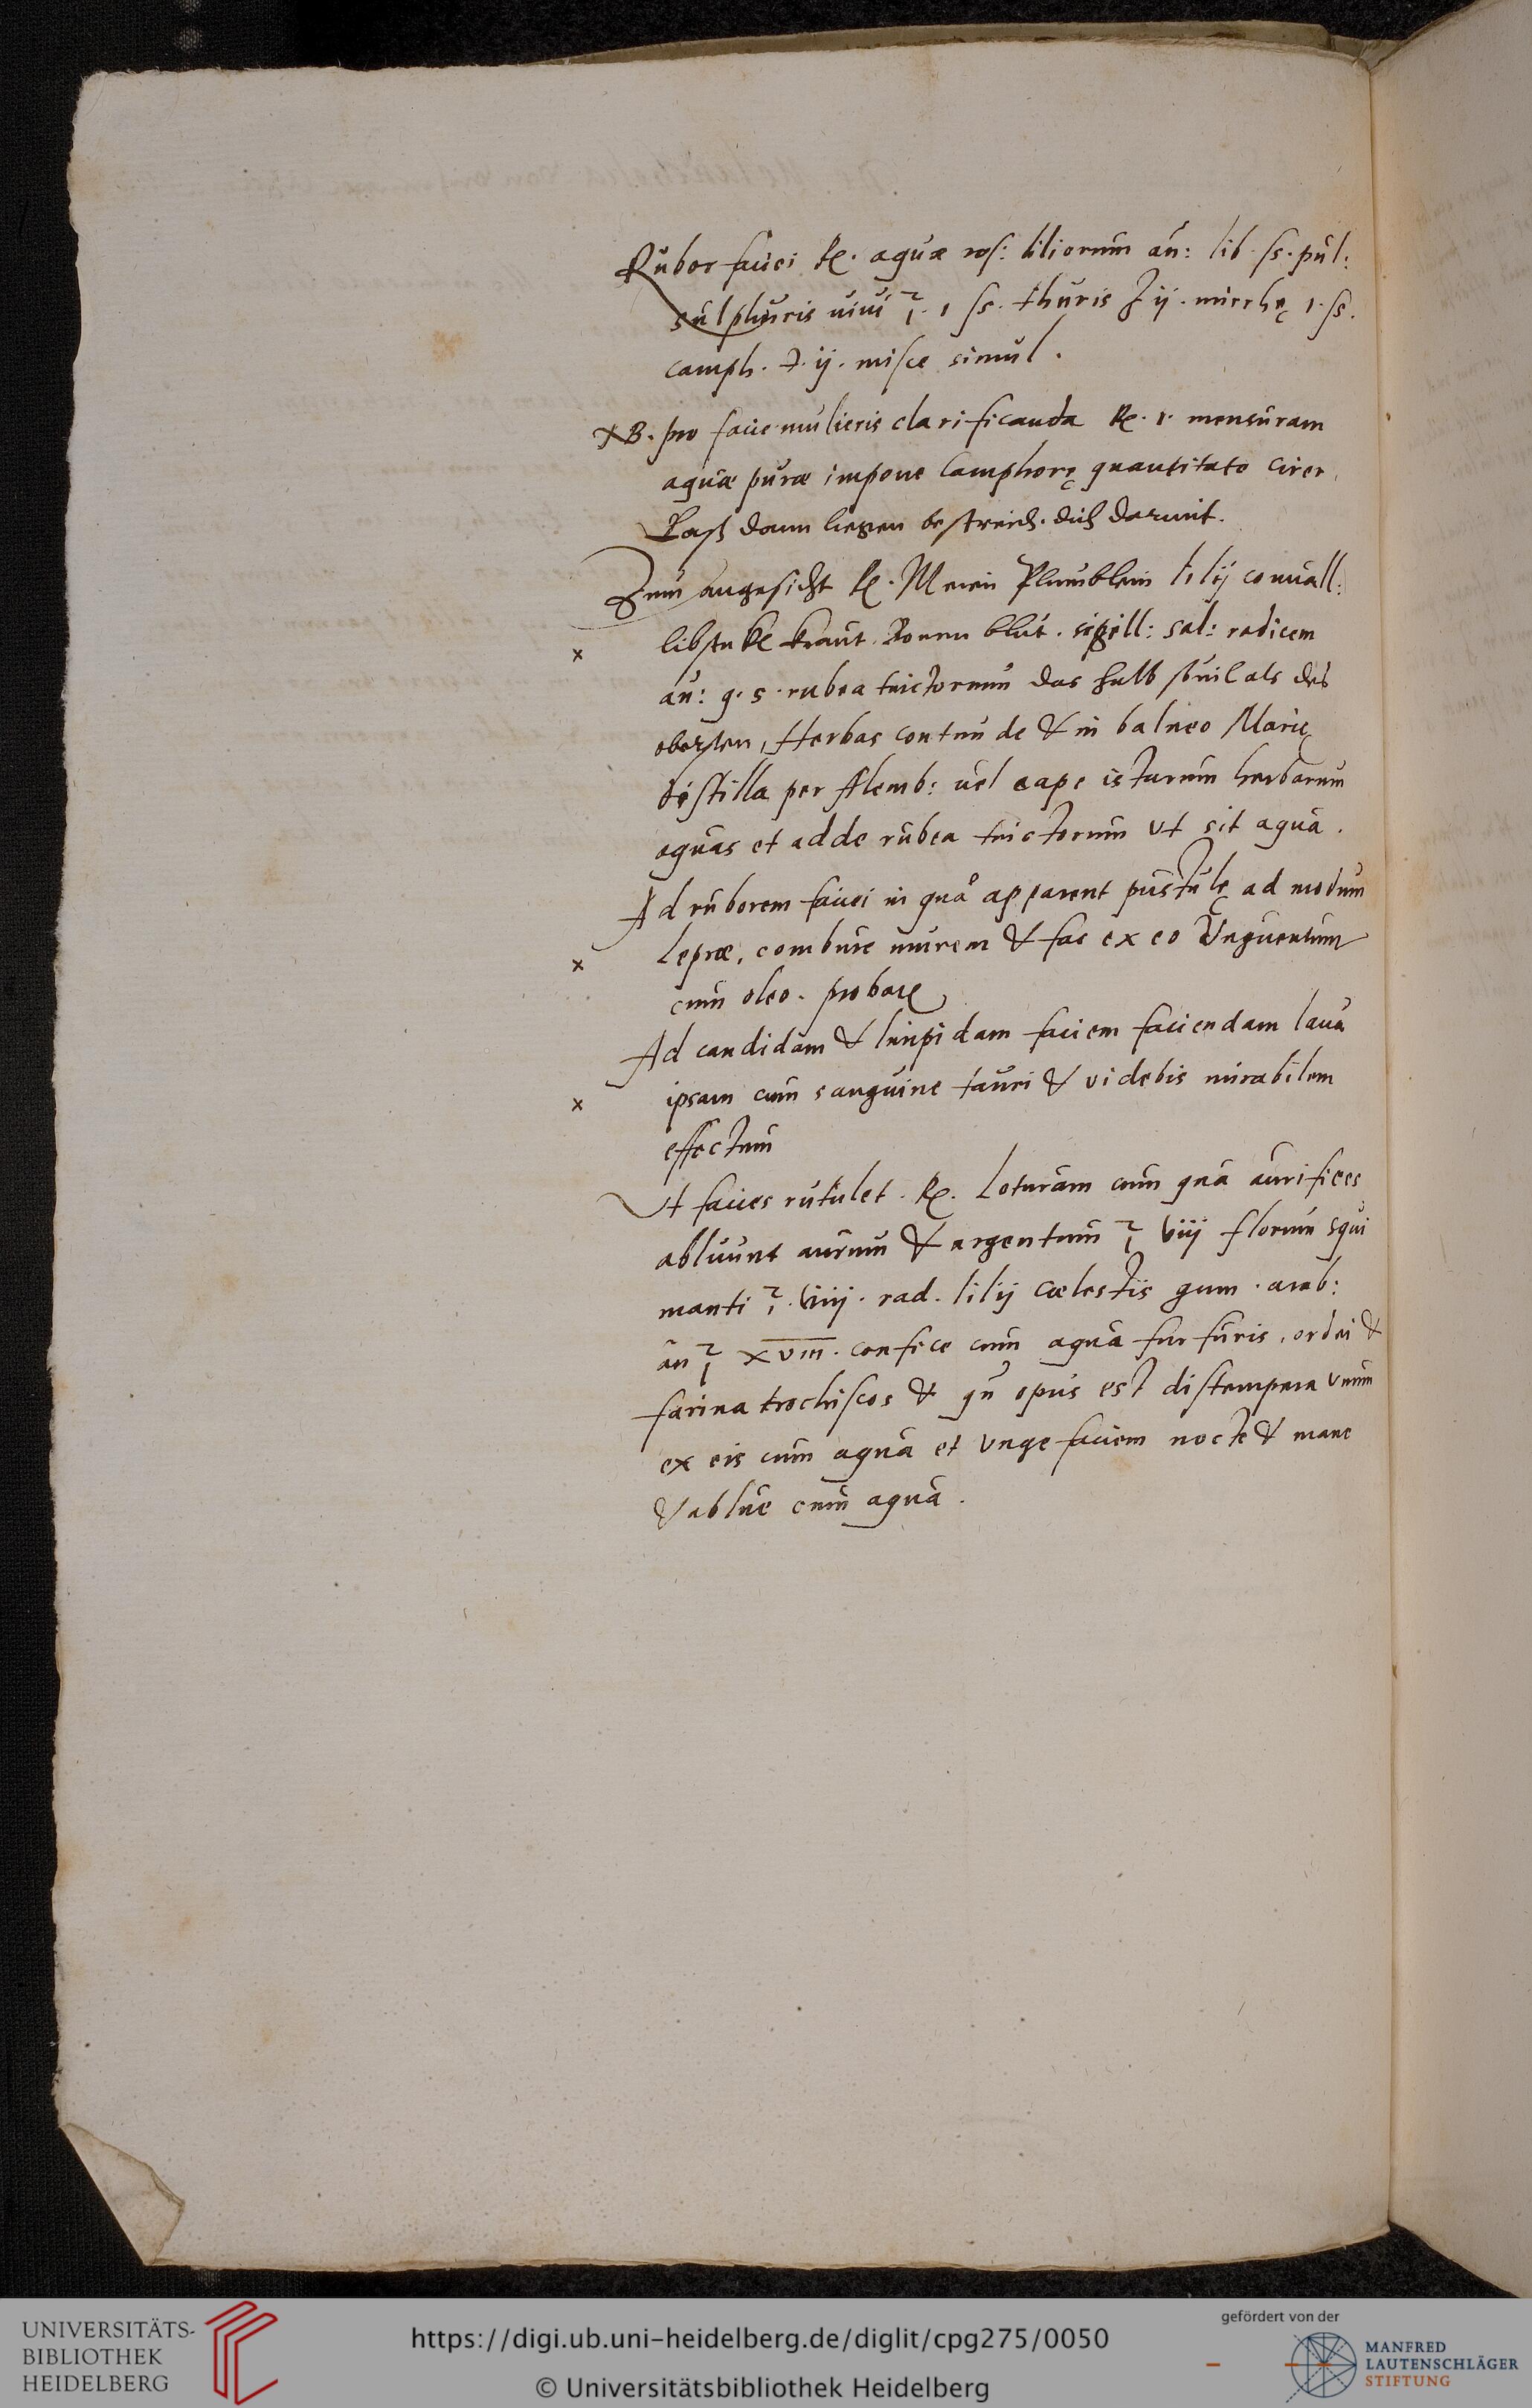 Rubor faciei ℞. aquæ ros: liliorum an: lib. ss. pul:
sulphuris uiui ℥. 1 ss. thuris ʒ ij. mirrhę 1. ss.
camph. ℈. ij. misce simul.
× B. pro facie mulieris clarificanda ℞. 1. mensuram
aquæ puræ impone Camphorę quantitate cicer.
Laß dann liegen bestreich. dich darmit.
Zum angesicht ℞. Meien Plumblein lilij conuall:
× libstukl kraut. Bonen blüt. sigill: sal: radicem
an: q. s. rubea tinctorum das halb souil als des
obersten, Herbas contunde & in balneo Marię
distilla per Alemb: uel cape istarum herbarum
aquas et adde rubea tinctorum vt sit aqua.
Ad ruborem faciei in qua apparent pustulę ad modum
× Lepræ, combure murem & fac ex eo Vnguentum
cum oleo. probare
Ad candidam & limpidam faciem faciendam laua
× ipsam cum sanguine tauri & videbis mirabilem
effectum
Vt facies rutulet. ℞. Loturam cum qua aurifices
abluunt aurum & argentum ℥ viij florum squi
manti ℥. viiij. rad. lilij cœlestis gum. arab:
an ℥ xviii. confice cum aqua furfuris, ordei &
farina trochiscos & qn opus est distempera vnum
ex eis cum aqua et vnge faciem nocte & mane
& ablue cum aqua.
UNIVERSITÄTS-
BIBLIOTHEK
HEIDELBERG
https://digi.ub.uni-heidelberg.de/diglit/cpg275/0050
© Universitätsbibliothek Heidelberg
gefördert von der
MANFRED
LAUTENSCHLÄGER
STIFTUNG